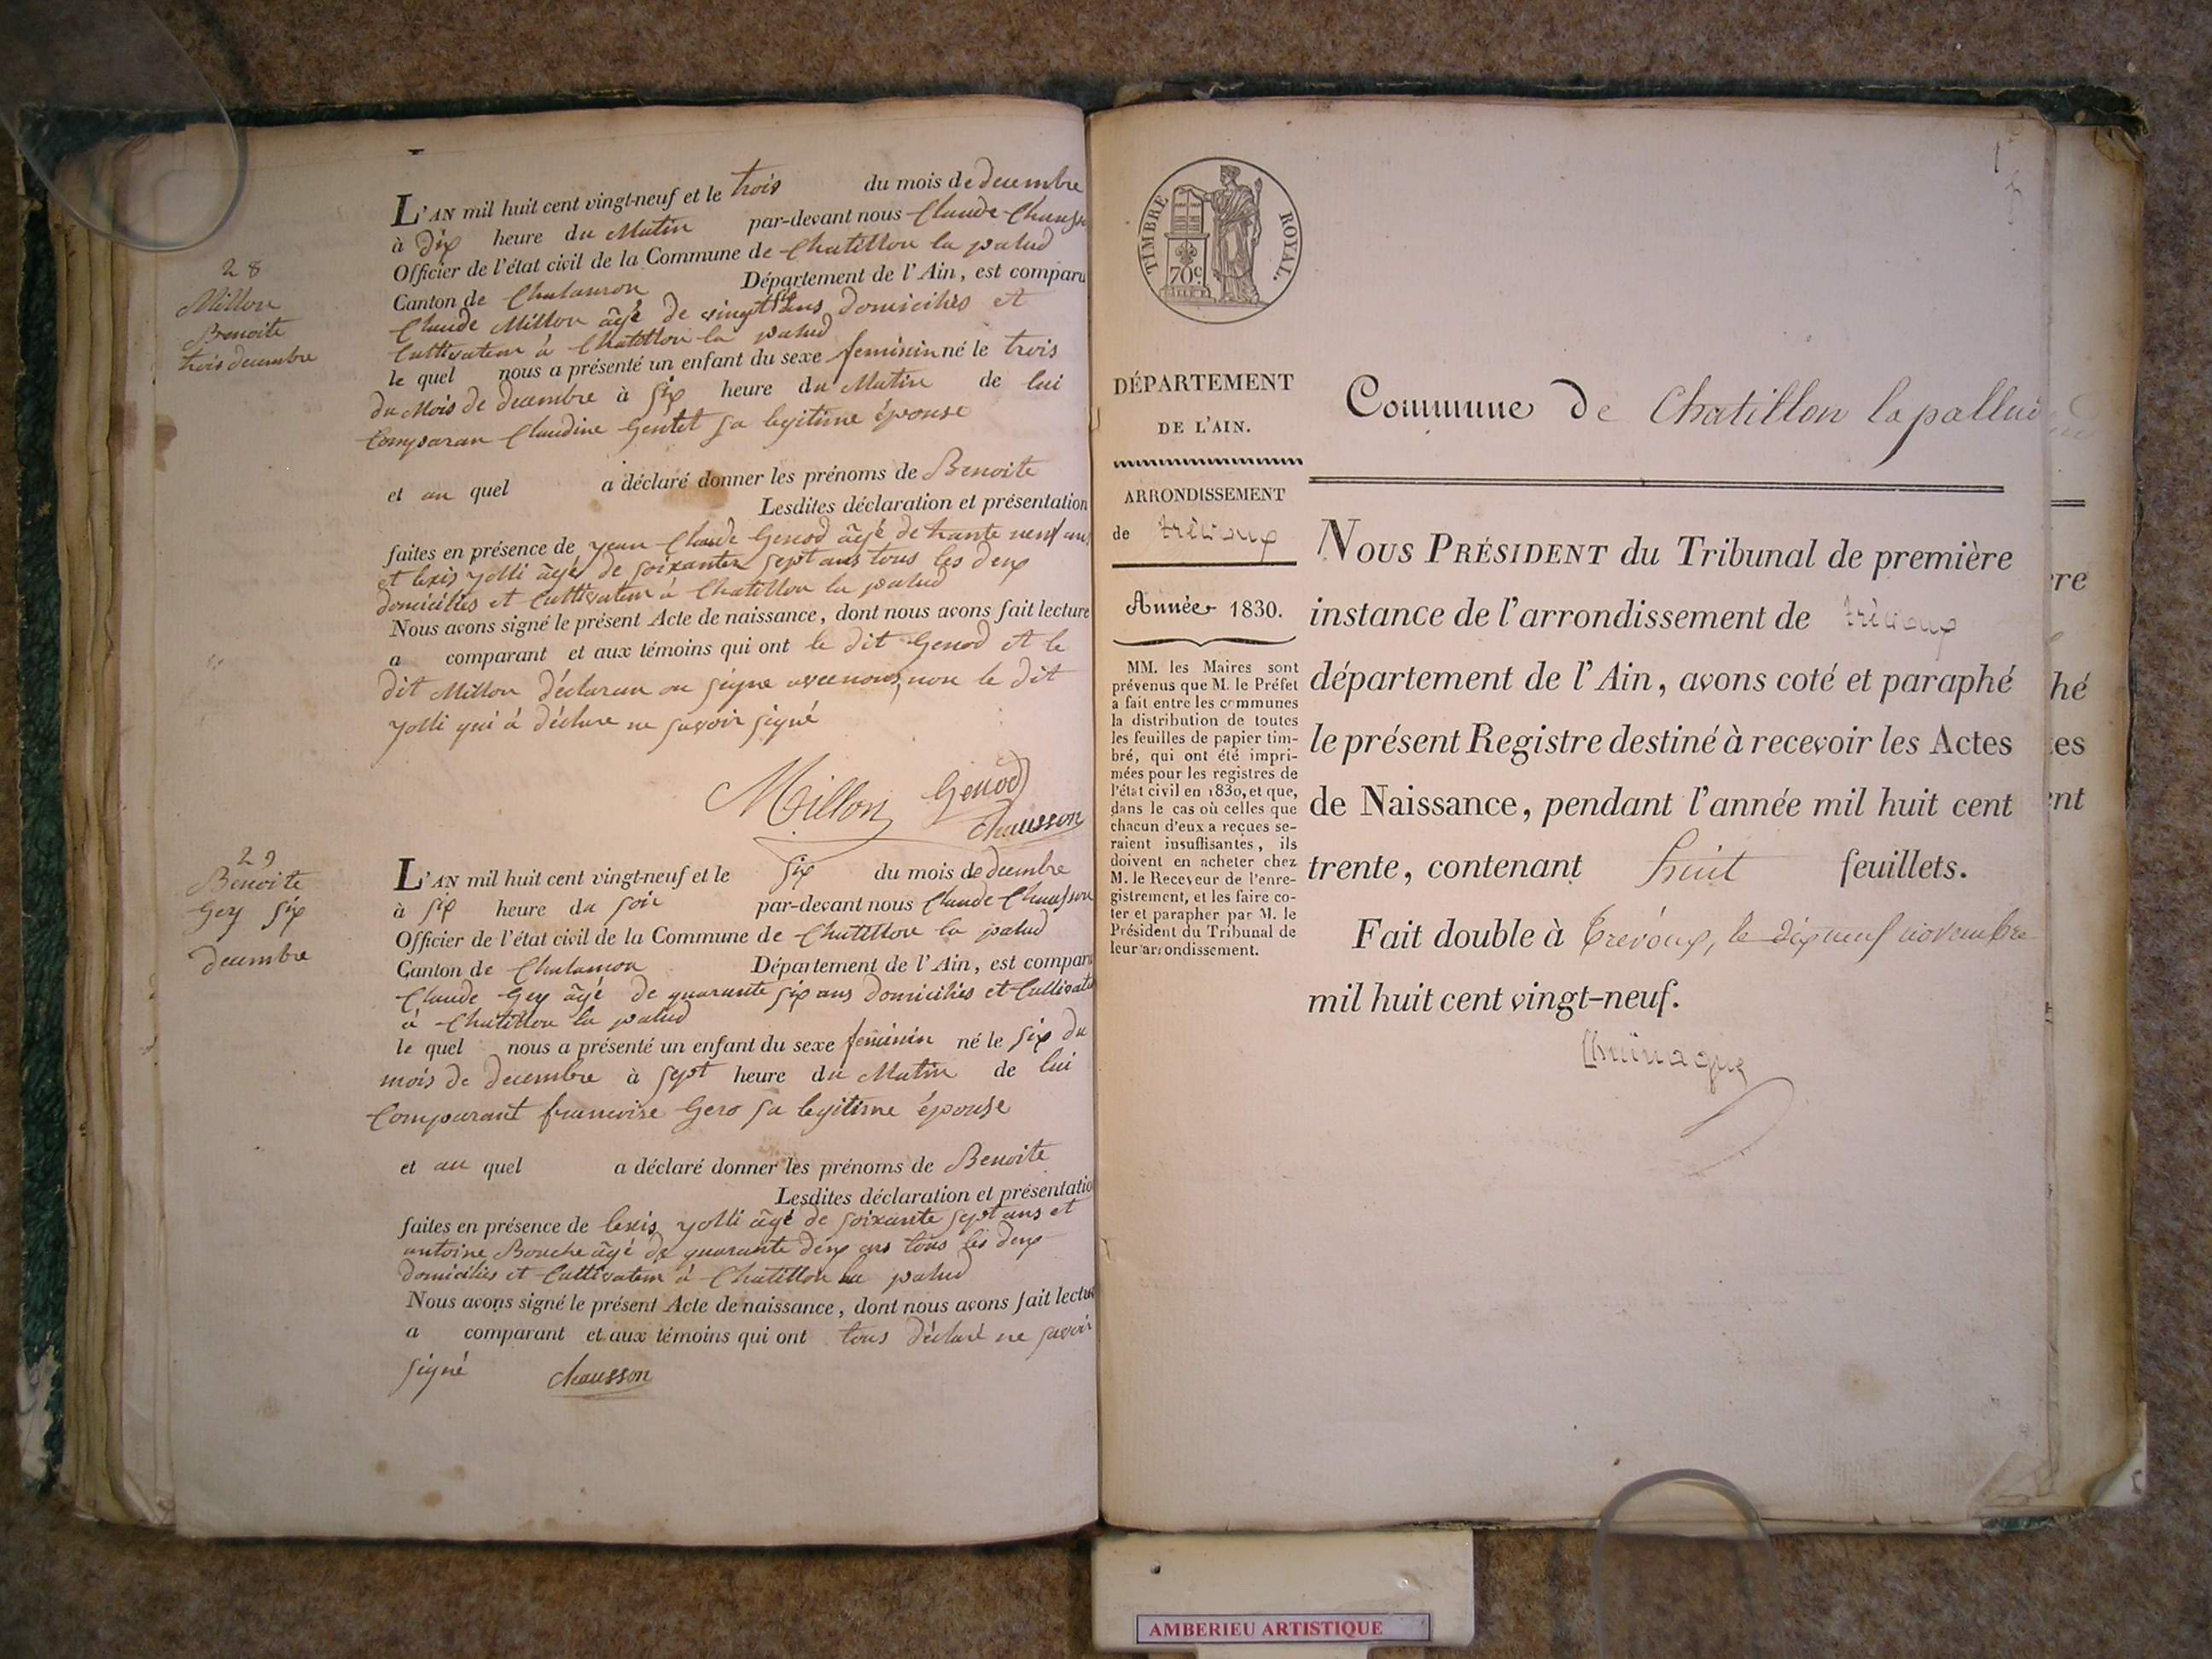 28
Millon
Benoite
trois decembre
L'AN mil huit cent vingt-neuf et le trois du mois de decembre
à dix heure du Matin par-devant nous Claude Chausson
Officier de l'état civil de la Commune de Chatillon la palud
Canton de Chalamon Département de l'Ain, est comparu
Claude Millon âgé de vingt ans domiciliés et
Cultivateur à Chatillon la palud
le quel nous a présenté un enfant du sexe feminin né le trois
du Mois de decembre à six heure du Matin de lui
Comparan Claudine Gentet sa legitime épouse
et au quel a déclaré donner les prénoms de Benoite
Lesdites déclaration et présentation
faites en présence de jean Claude Genod âgé de trante neuf ans
et lexis yolli âgé de soixante sept ans tous les deux
domiciliés et Cultivateur à Chatillon la palud
Nous avons signé le présent Acte de naissance, dont nous avons fait lecture
a comparant et aux témoins qui ont le dit Genod et le
dit Millon déclaran on signe avec nous, non le dit
yolli qui à déclare ne savoir signé
Millon Genod
chausson
29
Benoite
Gey six
decembre
L'AN mil huit cent vingt-neuf et le six du mois de decembre
à six heure du soir par-devant nous Claude Chausson
Officier de l'état civil de la Commune de Chatillon la palud
Canton de Chalamon Département de l'Ain, est comparu
Claude Gey âgé de quarante six ans domiciliés et Cultivateur
à Chatillon la palud
le quel nous a présenté un enfant du sexe feminin né le six du
mois de decembre à sept heure du Matin de lui
Comparant francoise Gero sa legitime épouse
et au quel a déclaré donner les prénoms de Benoite
Lesdites déclaration et présentatio
faites en présence de lexis yolli âgé de soixante sept ans et
antoine Bouche âgé de quarante deux ans tous les deux
domiciliés et Cultivateur à Chatillon la palud
Nous avons signé le présent Acte de naissance, dont nous avons fait lectur
a comparant et aux témoins qui ont tous déclaré ne savoir
signé chausson
TIMBRE ROYAL.
70 c.
DÉPARTEMENT
DE L'AIN.
ARRONDISSEMENT
de trévoux
Année 1830.
MM. les Maires sont
prévenus que M. le Préfet
a fait entre les communes
la distribution de toutes
les feuilles de papier tim-
bré, qui ont été impri-
mées pour les registres de
l'état civil en 1830, et que,
dans le cas où celles que
chacun d'eux a reçues se-
raient insuffisantes, ils
doivent en acheter chez
M. le Receveur de l'enre-
gistrement, et les faire co-
ter et parapher par M. le
Président du Tribunal de
leur arrondissement.
Commune de Chatillon la pallud
NOUS PRÉSIDENT du Tribunal de première
instance de l'arrondissement de trévoux
département de l'Ain, avons coté et paraphé
le présent Registre destiné à recevoir les Actes
de Naissance, pendant l'année mil huit cent
trente, contenant huit feuillets.
Fait double à Trévoux, le dix neuf novembre
mil huit cent vingt-neuf.
re
hé
es
nt
AMBERIEU ARTISTIQUE